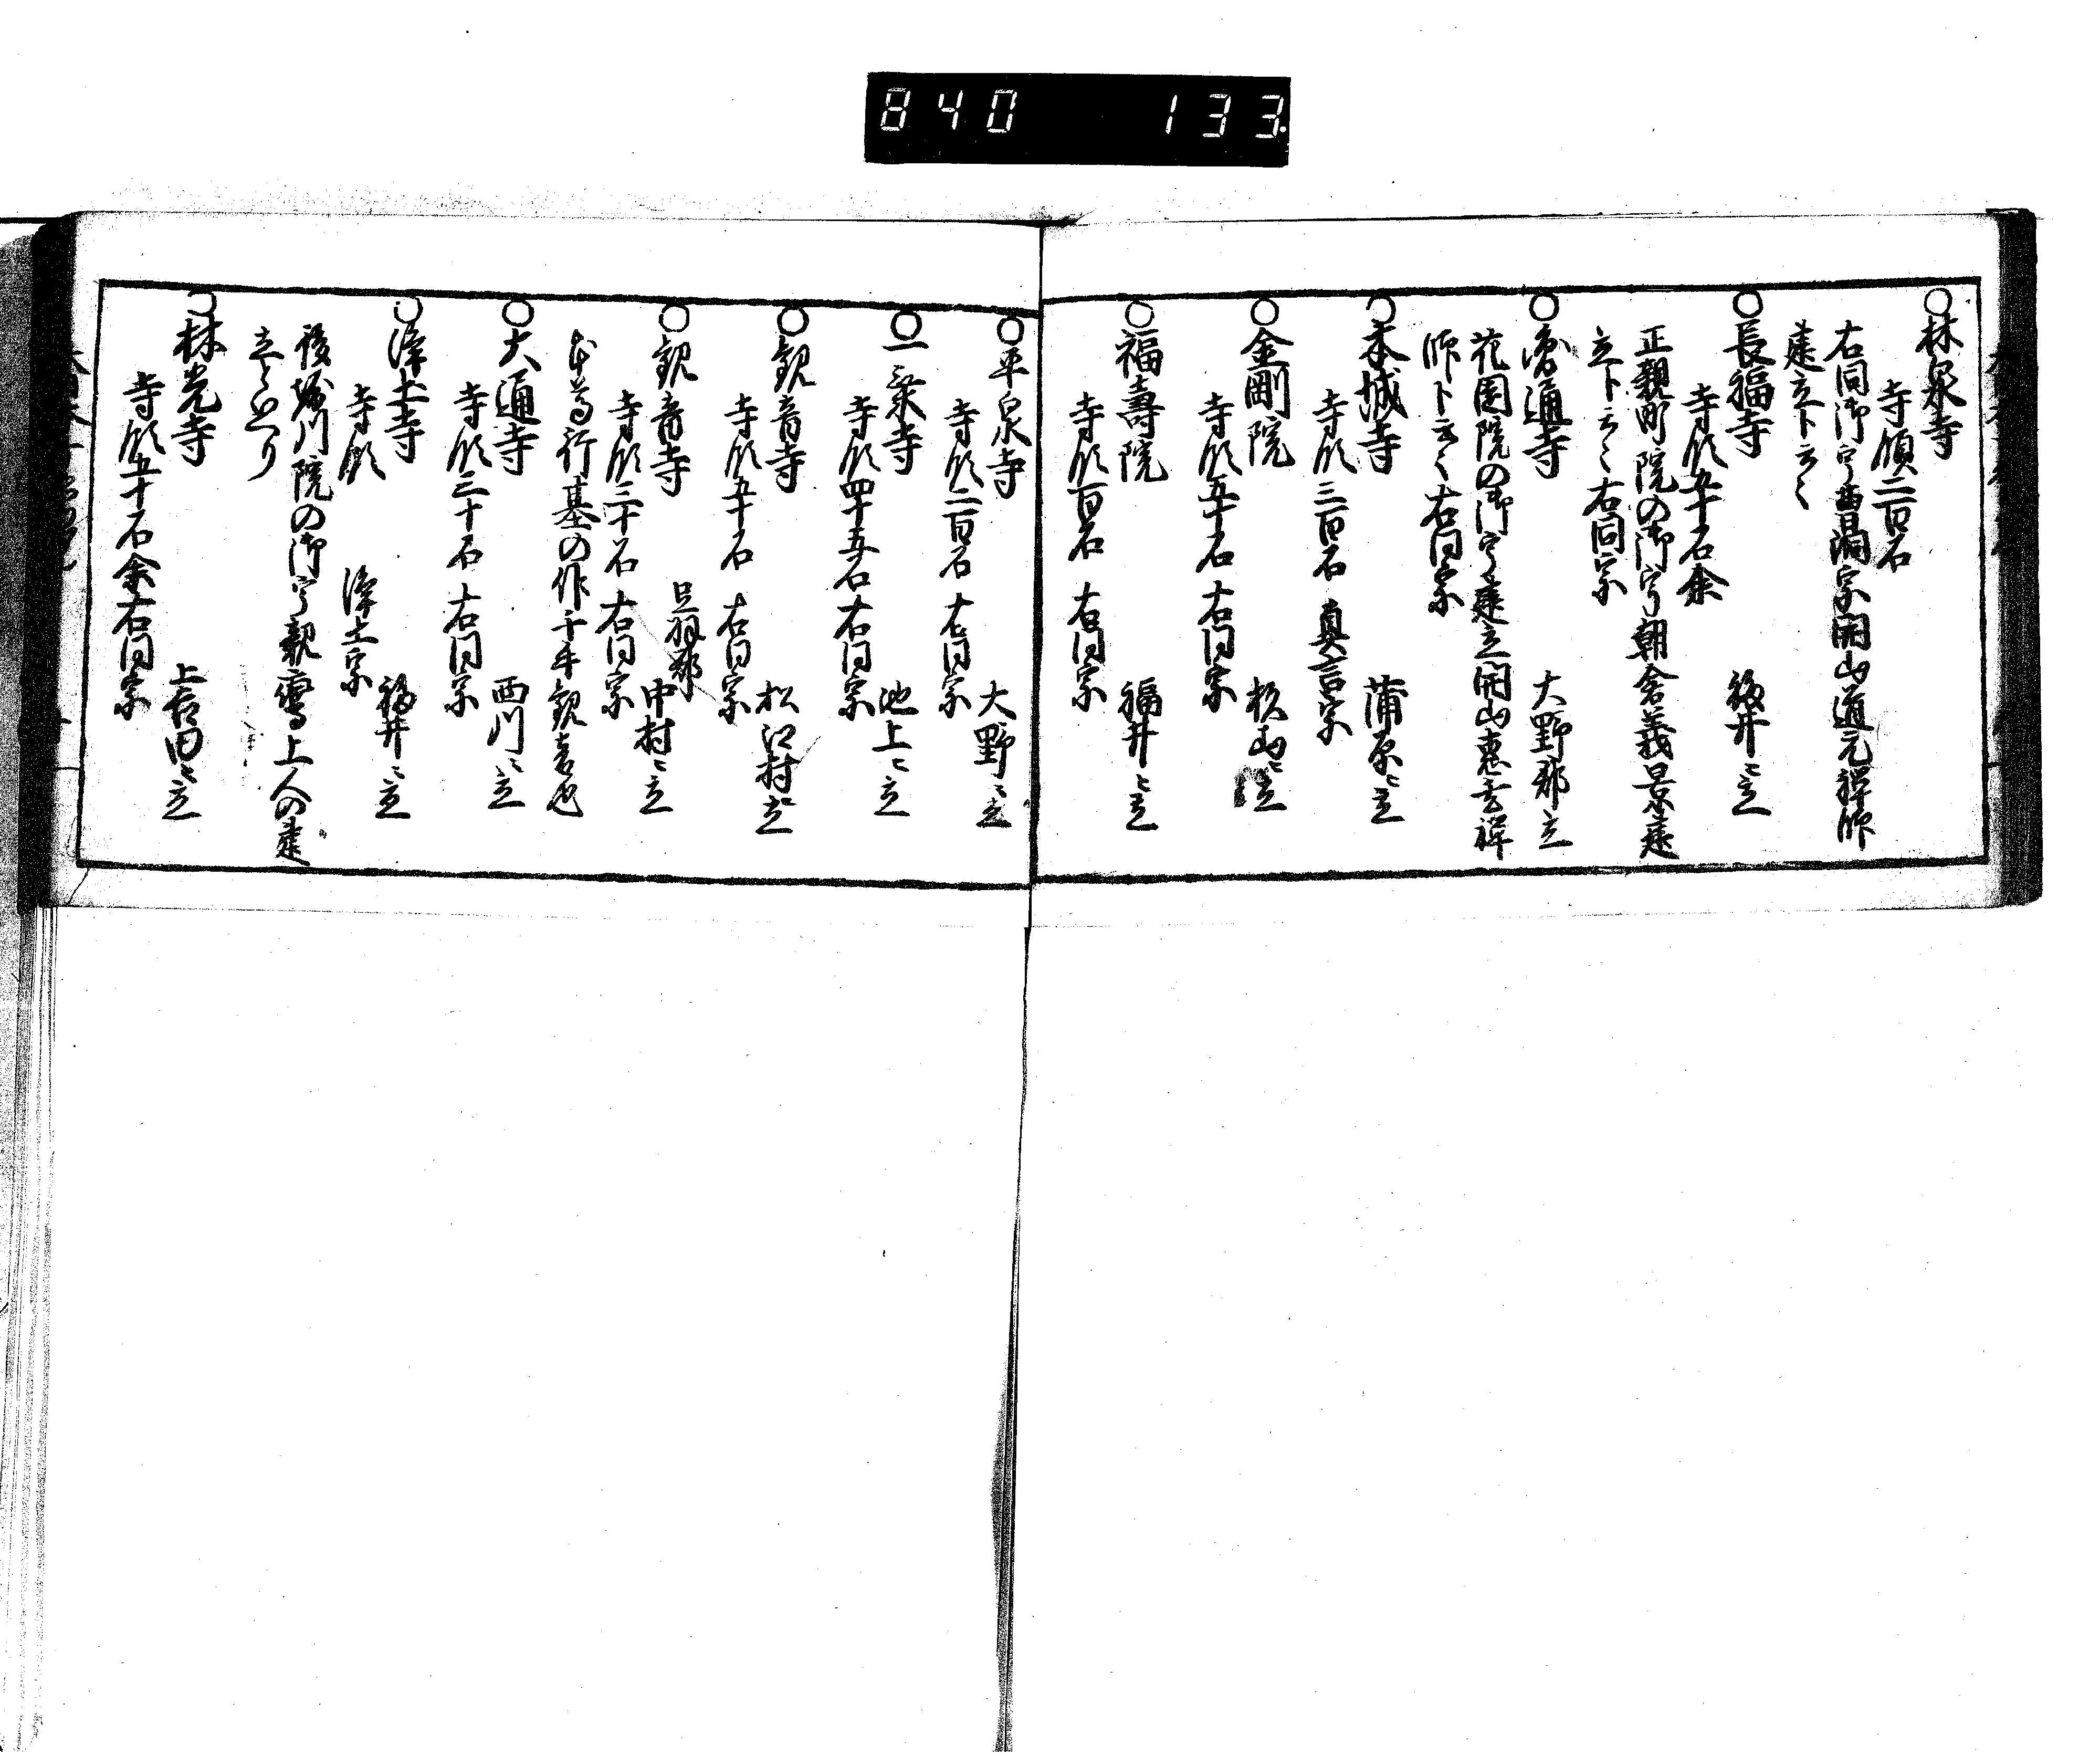 840 133
○林泉寺
寺領二百石
右同御宇曹洞宗開山道元禅師
建立ト云々
○長福寺 福井ニ立
寺領五十石余
正親町院の御宇朝倉義景建
立ト云々右同宗
通寺 大野郡立
花園院の御宇建立開山恵玄禅
師ト云々右同宗
○本城寺 蒲原ニ立
寺領三百石 真言宗
○金剛院 松山ニ立
寺領五十石 右同宗
○福壽院 福井ニ立
寺領百石 右同宗
○平泉寺 大野ニ立
寺領二百石 右同宗
○一乗寺 池上ニ立
寺領四十五石 右同宗
○観音寺 松江村ニ立
寺領五十石 右同宗
○観音寺 丹羽郡中村ニ立
寺領三十石 右同宗
本尊行基の作千手観音也
○大通寺 西川ニ立
寺領三十石 右同宗
○浄土寺 福井ニ立
寺領 浄土宗
後堀川院の御宇親鸞上人の建
立
○林光寺 上吉田ニ立
寺領五十石余右同宗